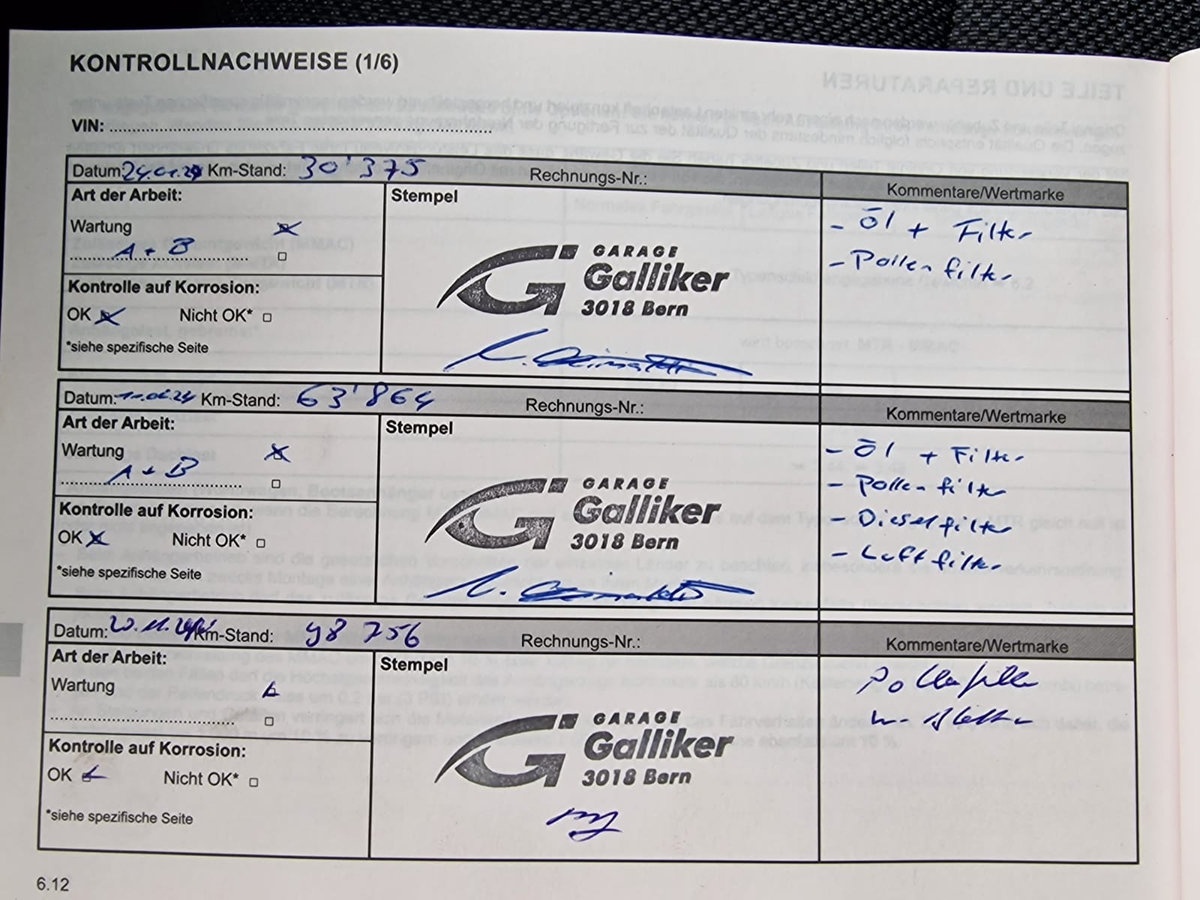 KONTROLLNACHWEISE (1/6)
TEILE UND REPARATUREN
VIN:
Datum: 24.01.24 Km-Stand: 30'375 Rechnungs-Nr.: Kommentare/Wertmarke
Art der Arbeit: Stempel
Wartung
A + B
Kontrolle auf Korrosion:
OK Nicht OK*
*siehe spezifische Seite
GARAGE
Galliker
3018 Bern
- Öl + Filter
- Pollenfilter
Datum: Km-Stand: 63'864 Rechnungs-Nr.: Kommentare/Wertmarke
Art der Arbeit: Stempel
Wartung
A + B
Kontrolle auf Korrosion:
OK Nicht OK*
*siehe spezifische Seite
GARAGE
Galliker
3018 Bern
- Öl + Filter
- Pollenfilter
- Dieselfilter
- Luftfilter
Datum: Km-Stand: 98 756 Rechnungs-Nr.: Kommentare/Wertmarke
Art der Arbeit: Stempel
Wartung
Kontrolle auf Korrosion:
OK Nicht OK*
*siehe spezifische Seite
GARAGE
Galliker
3018 Bern
Pollenfilter
6.12